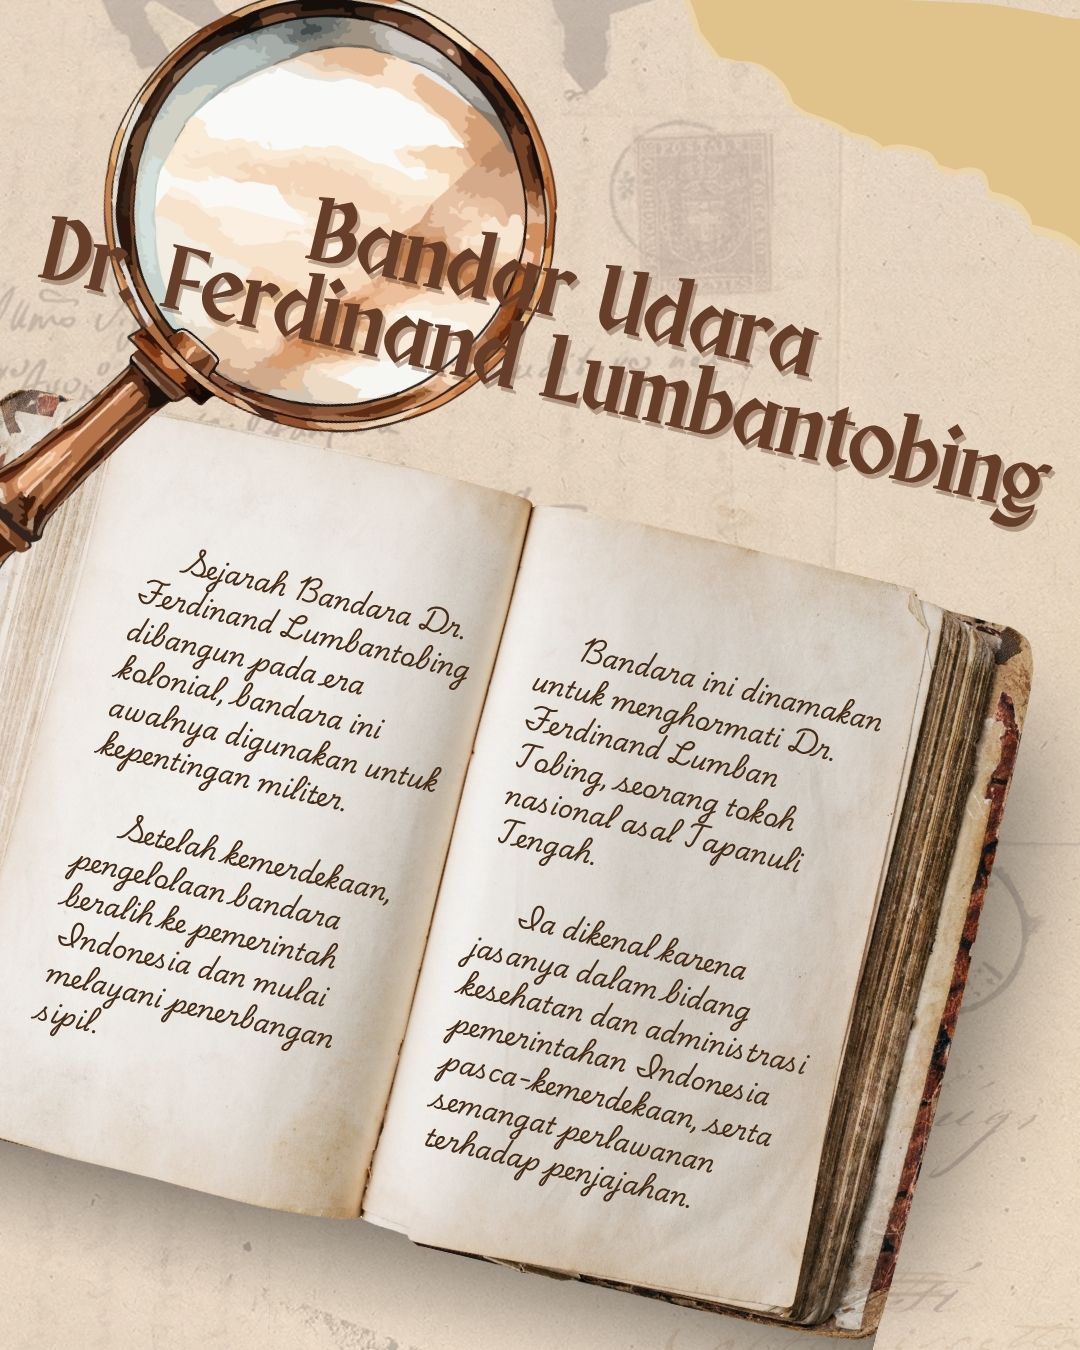 Bandar Udara
Dr. Ferdinand Lumbantobing
Sejarah Bandara Dr.
Ferdinand Lumbantobing
dibangun pada era
kolonial, bandara ini
awalnya digunakan untuk
kepentingan militer.
Setelah kemerdekaan,
pengelolaan bandara
beralih ke pemerintah
Indonesia dan mulai
melayani penerbangan
sipil.
Bandara ini dinamakan
untuk menghormati Dr.
Ferdinand Lumban
Tobing, seorang tokoh
nasional asal Tapanuli
Tengah.
Ia dikenal karena
jasanya dalam bidang
kesehatan dan administrasi
pemerintahan Indonesia
pasca-kemerdekaan, serta
semangat perlawanan
terhadap penjajahan.